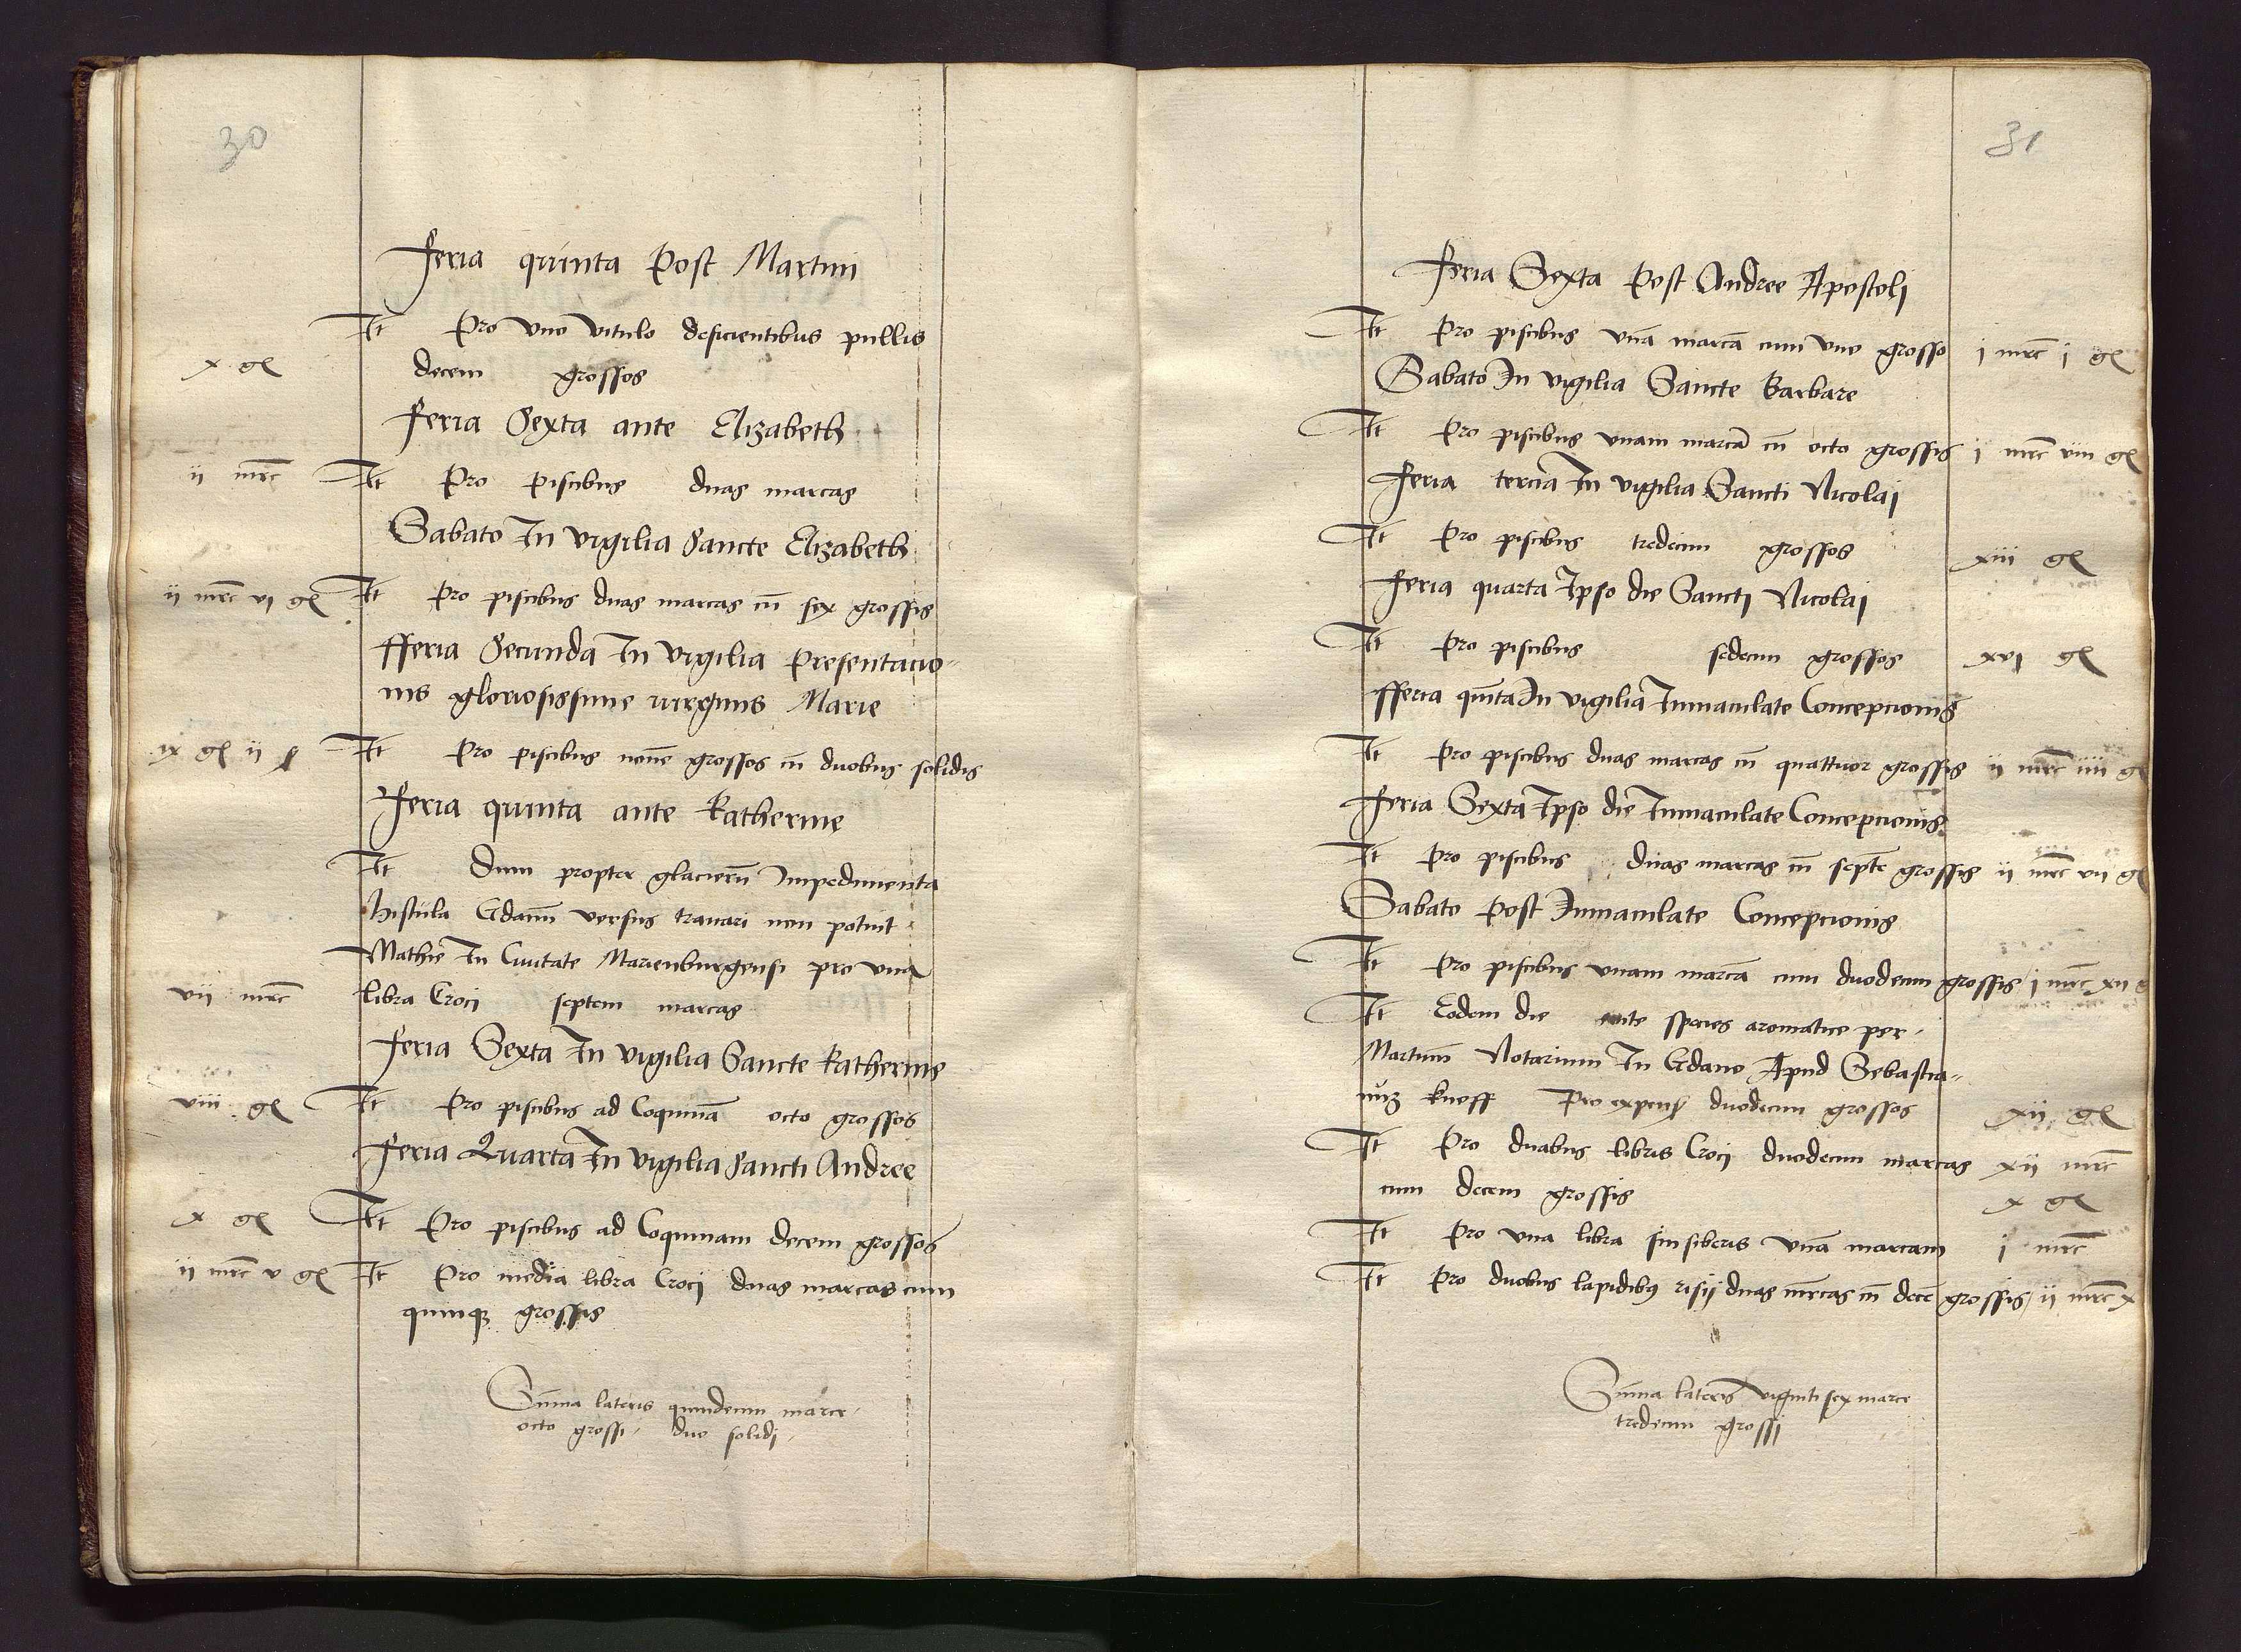 30
Feria quinta Post Martini
It Pro vno vitulo deficientibus pullis
x gł decem grossos
Feria Sexta ante Elizabeth
ii mrc It Pro Piscibus duas marcas
Sabato In vigilia Sancte Elizabeth
ii mrc vi gł It Pro piscibus duas marcas cū sex grossis
fferia Secunda In vigilia Presentacio-
nis gloriosissime virginis Marie
ix gł ii ß It Pro piscibus nouē grossos cū duobus solidis
Feria quinta ante Katherine
It Dum propter glacierū Impedimenta
histula Gdanū versus transri non potuit
Mathie In Ciuitate Marienburgensi pro vna
vii mrc libra Croci septem marcas
Feria Sexta In vigilia Sancte Katherine
viii gł It Pro piscibus ad Coquinā octo grossos
Feria Quarta In vigilia Sancti Andree
x gł It Pro piscibus ad Coquinam decem grossos
ii mrc v gł It Pro media libra Croci duas marcas cum
quinqꝫ grossis
Sūma lateris quindecim marce
octo grossi duo solidi
31
Feria Sexta Post Andree Apostoli
It Pro piscibus vnā marcā cum vno grosso j mrc j gł
Sabato In vigilia Sancte Barbare
It Pro piscibus vnam marcā cū octo grossis j mrc viii gł
Feria tercia In vigilia Sancti Nicolai
It Pro piscibus tredecim grossos xiii gł
Feria quarta Ipso die Sancti Nicolai
It Pro piscibus sedecim grossos xvj gł
fferia quīta In vigilia Inmaculate Concepcionis
It Pro piscibus duas marcas cū quattuor grossis ii mrc iiii gł
Feria Sexta Ipso die Inmaculate Concepcionis
It Pro piscibus duas marcas cū septē grossis ii mrc vii gł
Sabato Post Inmaculate Concepcionis
It Pro piscibus vnam marcā cum duodecim grossis j mrc xii g
It Eodem die emte species aromatice per
Martinū Notarium In Gdano Apud Sebastia-
nū kneff Pro expensis duodecim grossos xii gł
It Pro duabus libris Croci duodecim marcas xii mrc
cum decem grossis x gł
It Pro vna libra sinsiberis vnā marcam j mrc
It Pro duobus lapidibus risij duas mrcas cū decē grossis ii mrc x
Sūma lateris viginti sex marce
tredecim grossi